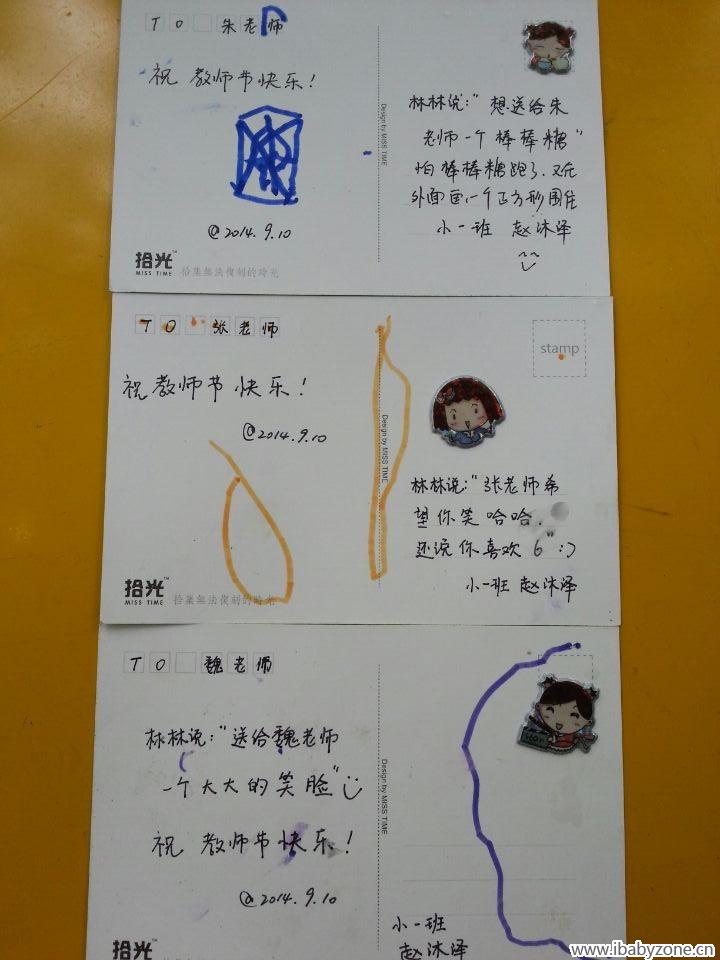 TO 朱老师
祝 教师节快乐!
@2014.9.10
拾光™
MISS TIME
拾集無法復刻的時光
Design by MISS TIME
林林说:"想送给朱
老师一个棒棒糖"
怕棒棒糖跑了,又在
外面画一个正方形围住
小一班 赵沐泽
TO 张老师
祝教师节快乐!
@2014.9.10
拾光™
MISS TIME
拾集無法復刻的時光
Design by MISS TIME
stamp
林林说:"张老师希
望你笑哈哈,
还说你喜欢6" :)
小一班 赵沐泽
TO 魏老师
林林说:"送给魏老师
一个大大的笑脸"
祝 教师节快乐!
@2014.9.10
拾光™
MISS TIME
Design by MISS TIME
小一班
赵沐泽
www.ibabyzone.cn